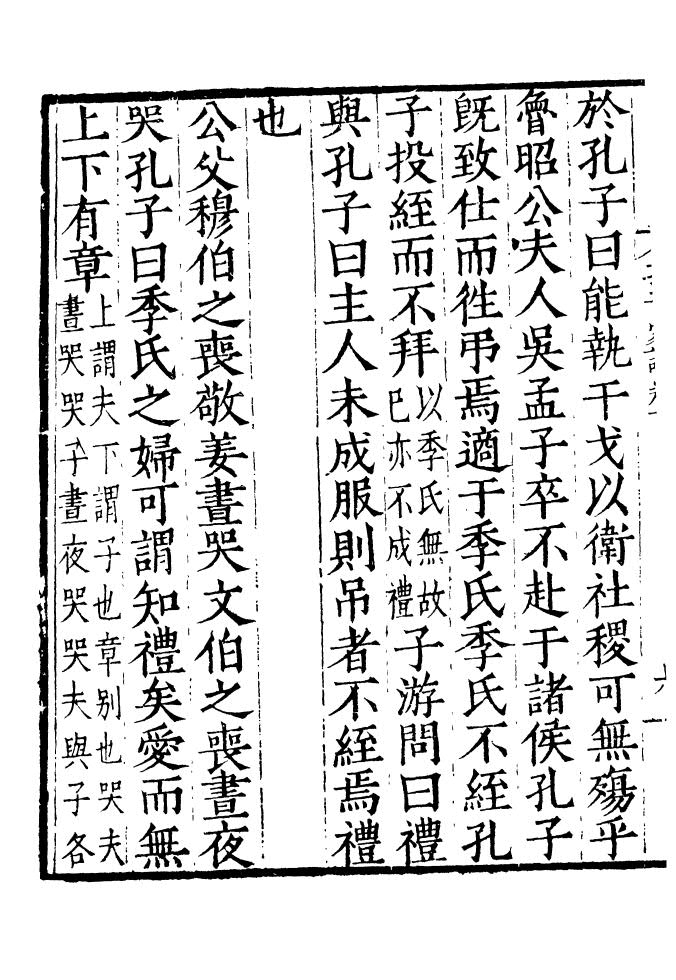 於孔子曰能執干戈以衛社稷可無殤乎
魯昭公夫人吳孟子卒不赴于諸侯孔子
旣致仕而徃弔焉適于季氏季氏不絰孔
子投絰而不拜以季氏無故已亦不成禮子游問曰禮
與孔子曰主人未成服則吊者不絰焉禮
也
公父穆伯之喪敬姜晝哭文伯之喪晝夜
哭孔子曰季氏之婦可謂知禮矣愛而無
上下有章上謂夫下謂子也章别也哭夫晝哭哭子晝夜哭哭夫與子各